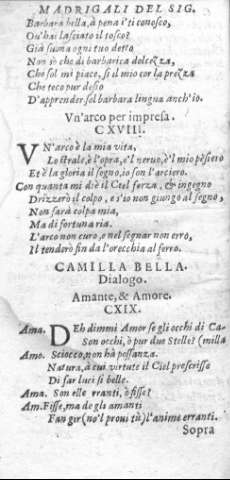 MADRIGALI DEL SIG.
Barbara bella, à pena i'ti conosco,
Ou'hai lasciato il tosco?
Già suona ogni tuo detto
Non sò che di barbarica dolcezza,
Che sol mi piace, si il mio cor la prezza
Che teco pur desio
D'apprender sol barbara lingua anch'io.
Vn'arco per impresa.
CXVIII.
VN'arco è la mia vita,
Lo strale, è l'opra, e'l neruo, è'l mio pēsiero
Et è la gloria il segno, io son l'arciero.
Con quanta mi diè il Ciel forza, & ingegno
Drizzerò il colpo, e s'io non giungo al segno,
Non sarà colpa mia,
Ma di fortuna ria.
L'arco non curo, e nel segnar non erro,
Il tenderò fin da l'orecchia al ferro.
CAMILLA BELLA.
Dialogo.
Amante, & Amore.
CXIX.
Ama. DEh dimmi Amor se gli occhi di Ca-
Son occhi, ò pur due Stelle? (milla
Amo. Sciocco, non hà possanza.
Natura, à cui virtute il Ciel prescrisse
Di far luci sì belle.
Ama. Son elle erranti, ò fisse?
Am. Fisse, ma de gli amanti
Fan gir (no'l proui tù) l'anime erranti.
Sopra